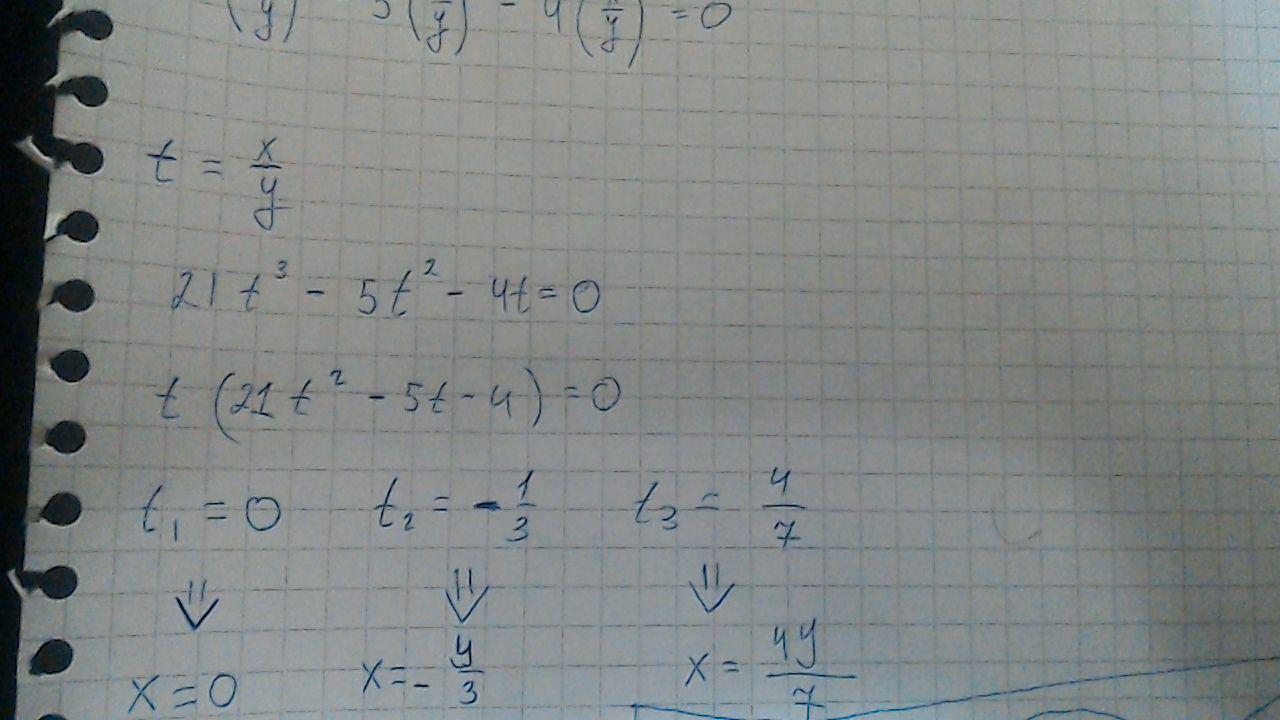 (x/y) 5(x/y) - 4(x/y) = 0
t = x/y
21t³ - 5t² - 4t = 0
t(21t² - 5t - 4) = 0
t₁ = 0 t₂ = -1/3 t₃ = 4/7
⇓ ⇓ ⇓
x = 0 x = -y/3 x = 4y/7